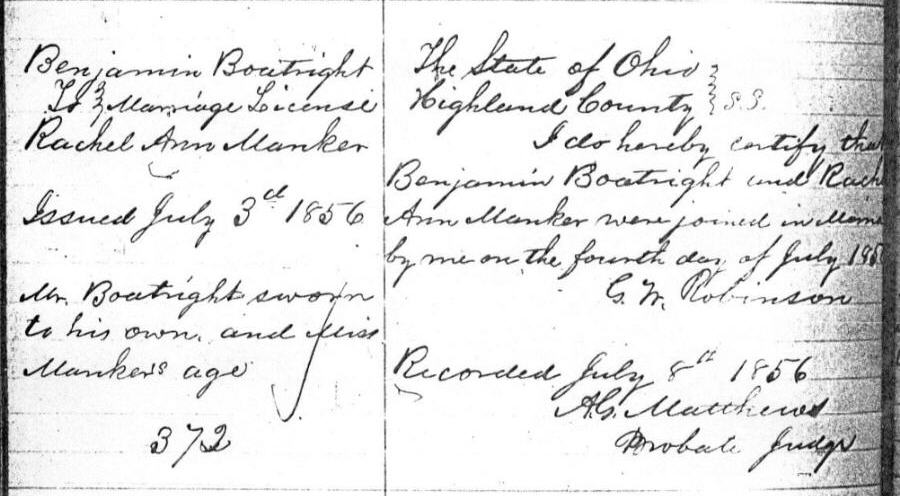 Benjamin Boatright
To } Marriage License
Rachel Ann Manker
Issued July 3d 1856
Mr. Boatright sworn
to his own and Miss
Manker's age
372
The State of Ohio }
Highland County } S.S.
I do hereby certify that
Benjamin Boatright and Rach
Ann Manker were joined in
by me on the fourth day of July 185
G. W. Robinson
Recorded July 8th 1856
A.G. Matthews
Probate Judge